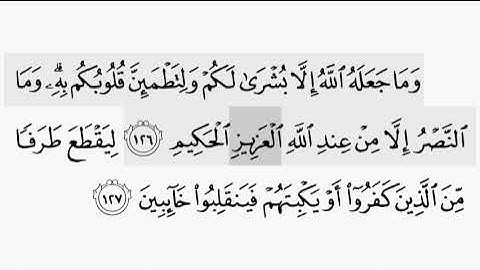 وَمَا جَعَلَهُ ٱللَّهُ إِلَّا بُشْرَىٰ لَكُمْ وَلِتَطْمَئِنَّ قُلُوبُكُم بِهِۦۗ وَمَا
ٱلنَّصْرُ إِلَّا مِنْ عِندِ ٱللَّهِ ٱلْعَزِيزِ ٱلْحَكِيمِ ١٢٦ لِيَقْطَعَ طَرَفًا
مِّنَ ٱلَّذِينَ كَفَرُوٓا۟ أَوْ يَكْبِتَهُمْ فَيَنقَلِبُوا۟ خَآئِبِينَ ١٢٧